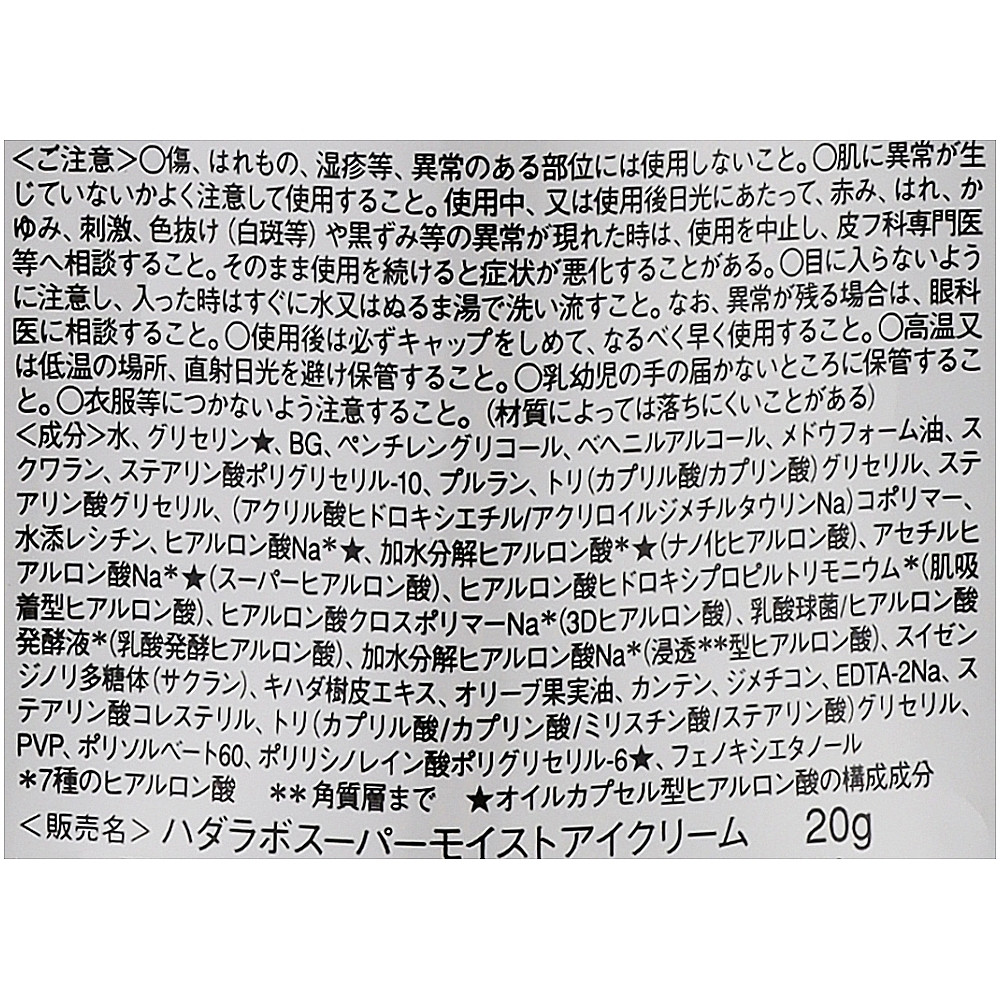 ＜ご注意＞○傷、はれもの、湿疹等、異常のある部位には使用しないこと。○肌に異常が生
じていないかよく注意して使用すること。使用中、又は使用後日光にあたって、赤み、はれ、か
ゆみ、刺激、色抜け（白斑等）や黒ずみ等の異常が現れた時は、使用を中止し、皮フ科専門医
等へ相談すること。そのまま使用を続けると症状が悪化することがある。○目に入らないよう
に注意し、入った時はすぐに水又はぬるま湯で洗い流すこと。なお、異常が残る場合は、眼科
医に相談すること。○使用後は必ずキャップをしめて、なるべく早く使用すること。○高温又
は低温の場所、直射日光を避け保管すること。○乳幼児の手の届かないところに保管するこ
と。○衣服等につかないよう注意すること。（材質によっては落ちにくいことがある）
＜成分＞水、グリセリン★、BG、ペンチレングリコール、ベヘニルアルコール、メドウフォーム油、ス
クワラン、ステアリン酸ポリグリセリル-10、プルラン、トリ（カプリル酸/カプリン酸）グリセリル、ステ
アリン酸グリセリル、（アクリル酸ヒドロキシエチル/アクリロイルジメチルタウリンNa）コポリマー、
水添レシチン、ヒアルロン酸Na*★、加水分解ヒアルロン酸*★（ナノ化ヒアルロン酸）、アセチルヒ
アルロン酸Na*★（スーパーヒアルロン酸）、ヒアルロン酸ヒドロキシプロピルトリモニウム*（肌吸
着型ヒアルロン酸）、ヒアルロン酸クロスポリマーNa*（3Dヒアルロン酸）、乳酸球菌/ヒアルロン酸
発酵液*（乳酸発酵ヒアルロン酸）、加水分解ヒアルロン酸Na*（浸透**型ヒアルロン酸）、スイゼン
ジノリ多糖体（サクラン）、キハダ樹皮エキス、オリーブ果実油、カンテン、ジメチコン、EDTA-2Na、ス
テアリン酸コレステリル、トリ（カプリル酸/カプリン酸/ミリスチン酸/ステアリン酸）グリセリル、
PVP、ポリソルベート60、ポリリシノレイン酸ポリグリセリル-6★、フェノキシエタノール
*7種のヒアルロン酸　**角質層まで　★オイルカプセル型ヒアルロン酸の構成成分
＜販売名＞ハダラボスーパーモイストアイクリーム　20g